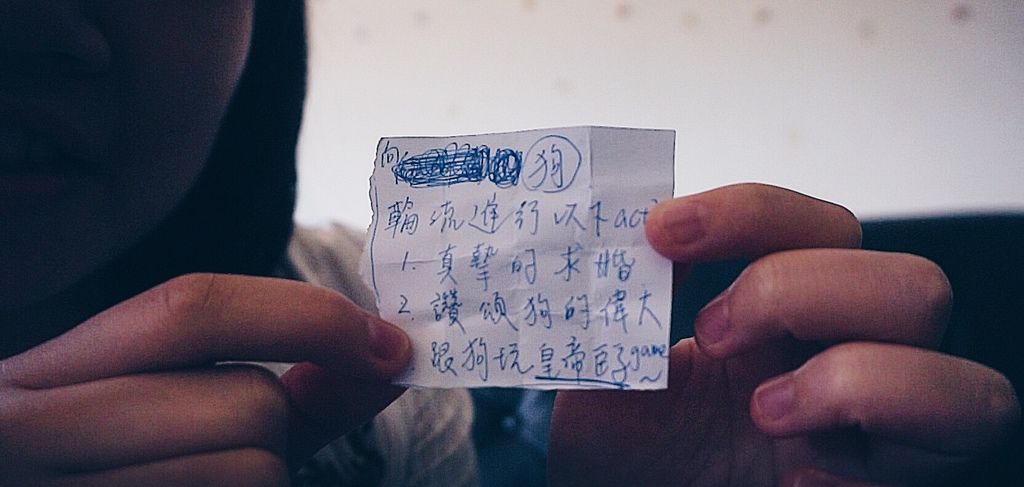 向 狗
輪流進行以下act
1. 真摯的求婚
2. 讚頌狗的偉大
跟狗玩皇帝臣子game~